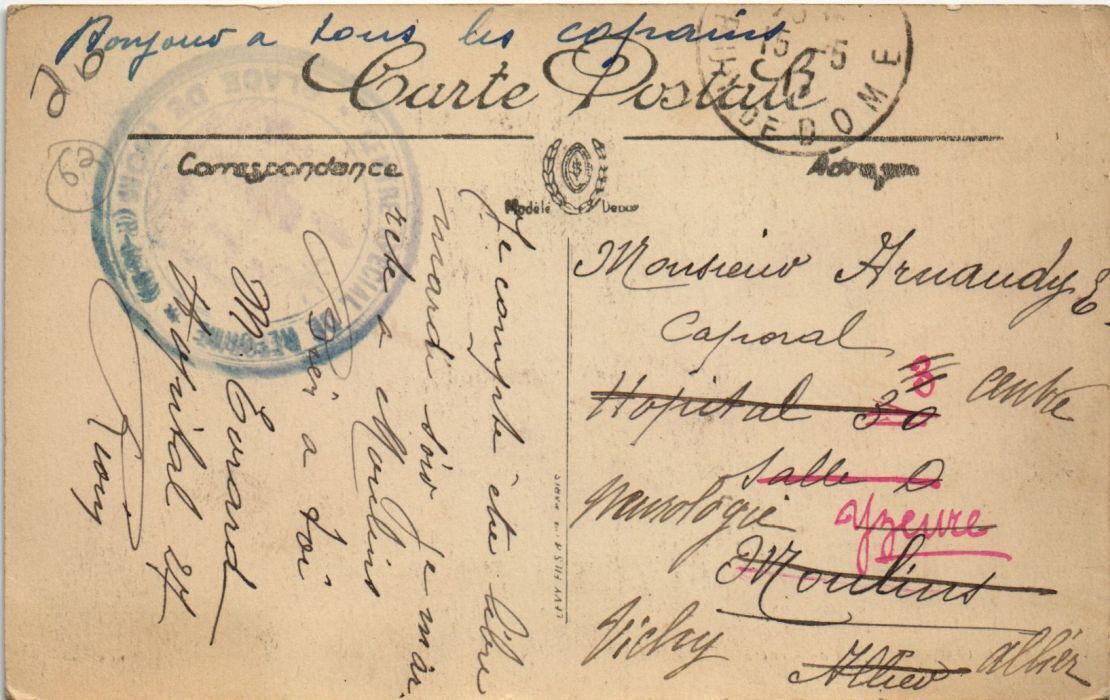 Bonjour a tous les copains
Carte Postale
15 -5
DE DOME
Correspondance
Adresse
Modèle Déposé
Je compte être libre
mardi soir je m'ar
rete a Moulins
Bien a toi
M. Evrard
Hopital 24
Riom
LEVY FILS & Cie PARIS
Monsieur Arnaudy E
Caporal
Hopital 30
3 centre
Salle D
neurologie
Yzeure
Moulins
Vichy
Allier
allier
63